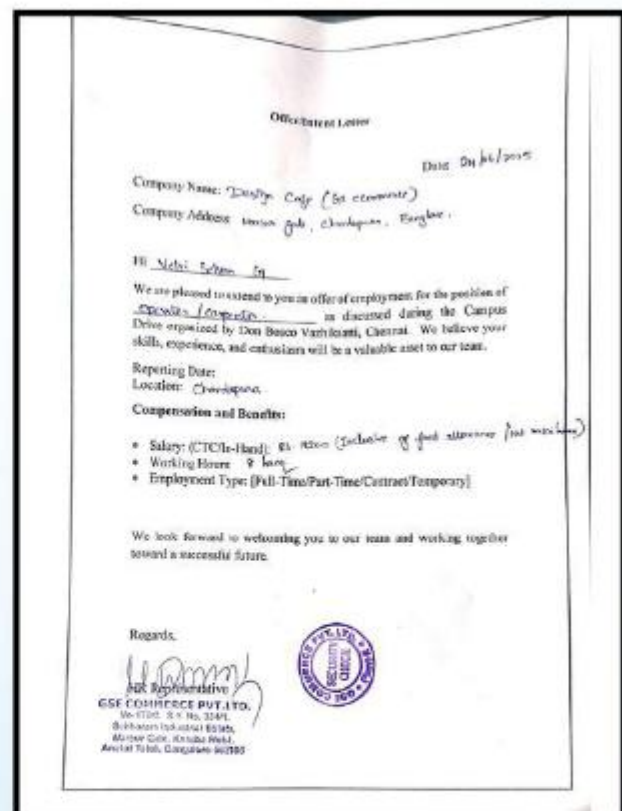 Offer/Intent Letter
Date:
Company Name: Design Cafe
Company Address: Chandapura,
Hi
We are pleased to extend to you an offer of employment for the position of
as discussed during the Campus
Drive organized by Don Bosco Vazhikaatti, Chennai. We believe your
skills, experience, and enthusiasm will be a valuable asset to our team.
Reporting Date:
Location: Chandapura
Compensation and Benefits:
• Salary: (CTC/In-Hand): (Inclusive of food allowance
• Working Hours: 8 hours
• Employment Type: [Full-Time/Part-Time/Contract/Temporary]
We look forward to welcoming you to our team and working together
toward a successful future.
Regards,
HR Representative
GSE COMMERCE PVT.LTD.
Industrial Estate,
GSE COMMERCE PVT. LTD.
SECURITY
CHECK